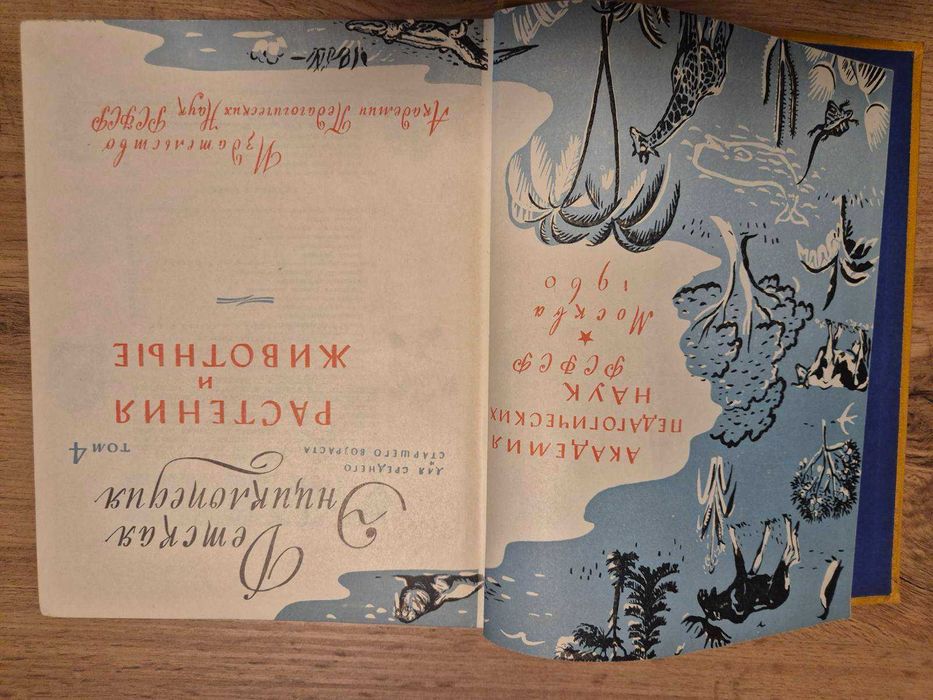 АКАДЕМИЯ
ПЕДАГОГИЧЕСКИХ
НАУК
РСФСР
Москва
1960
Детская
Энциклопедия
ДЛЯ СРЕДНЕГО
И
СТАРШЕГО ВОЗРАСТА
ТОМ 4
РАСТЕНИЯ
И
ЖИВОТНЫЕ
Издательство
Академии Педагогических Наук РСФСР